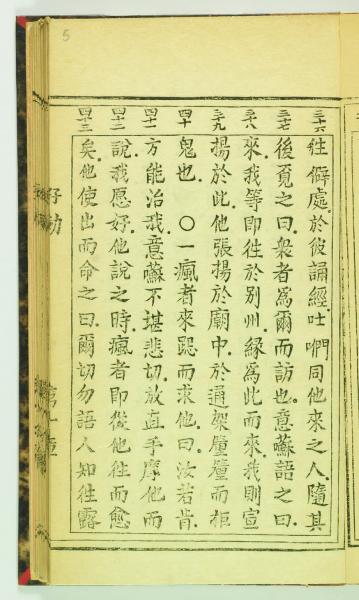 5
三十六 往僻處。於彼誦經。吐同他來之人隨其
三十七 後覓之曰。衆者爲爾而訪也。意囌語之曰。
三十八 來我等即徃於别州。緣爲此而來。我則宣
三十九 揚於此。他張揚於廟中。於通架釐釐而柜
四十 鬼也。〇一瘋者來跽而求他。曰。汝若肯。
四十一 方能治我。意囌不堪悲切。放直手摩他而
四十二 說。我愿好。他說之時。瘋者即從他徃而愈
四十三 矣。他使出而命之曰。爾切勿語人知。徃露
第一章